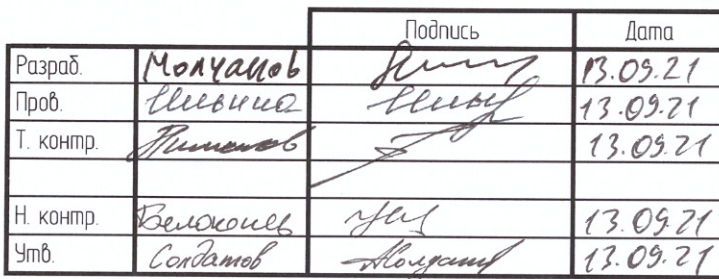 Подпись Дата
Разраб. Молчанов 13.09.21
Пров. Ильина 13.09.21
Т. контр. 13.09.21
Н. контр. Белоконец 13.09.21
Утв. Солдатов 13.09.21